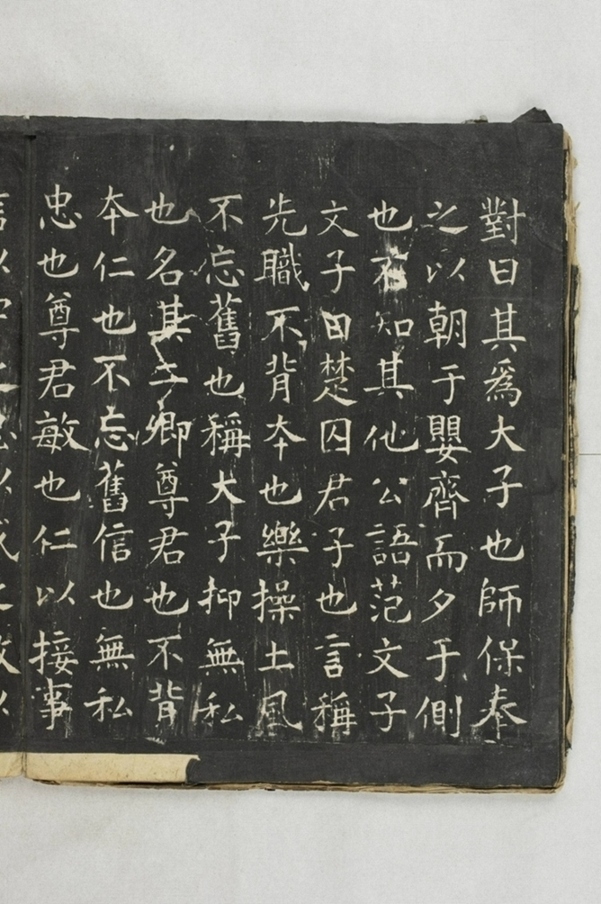 對曰其為大子也師保奉
之以朝于嬰齊而夕于側
也不知其他公語范文子
文子曰楚囚君子也言稱
先職不背夲也樂操土風
不忘舊也稱大子抑無私
也名其二卿尊君也不背
夲仁也不忘舊信也無私
忠也尊君敏也仁以接事